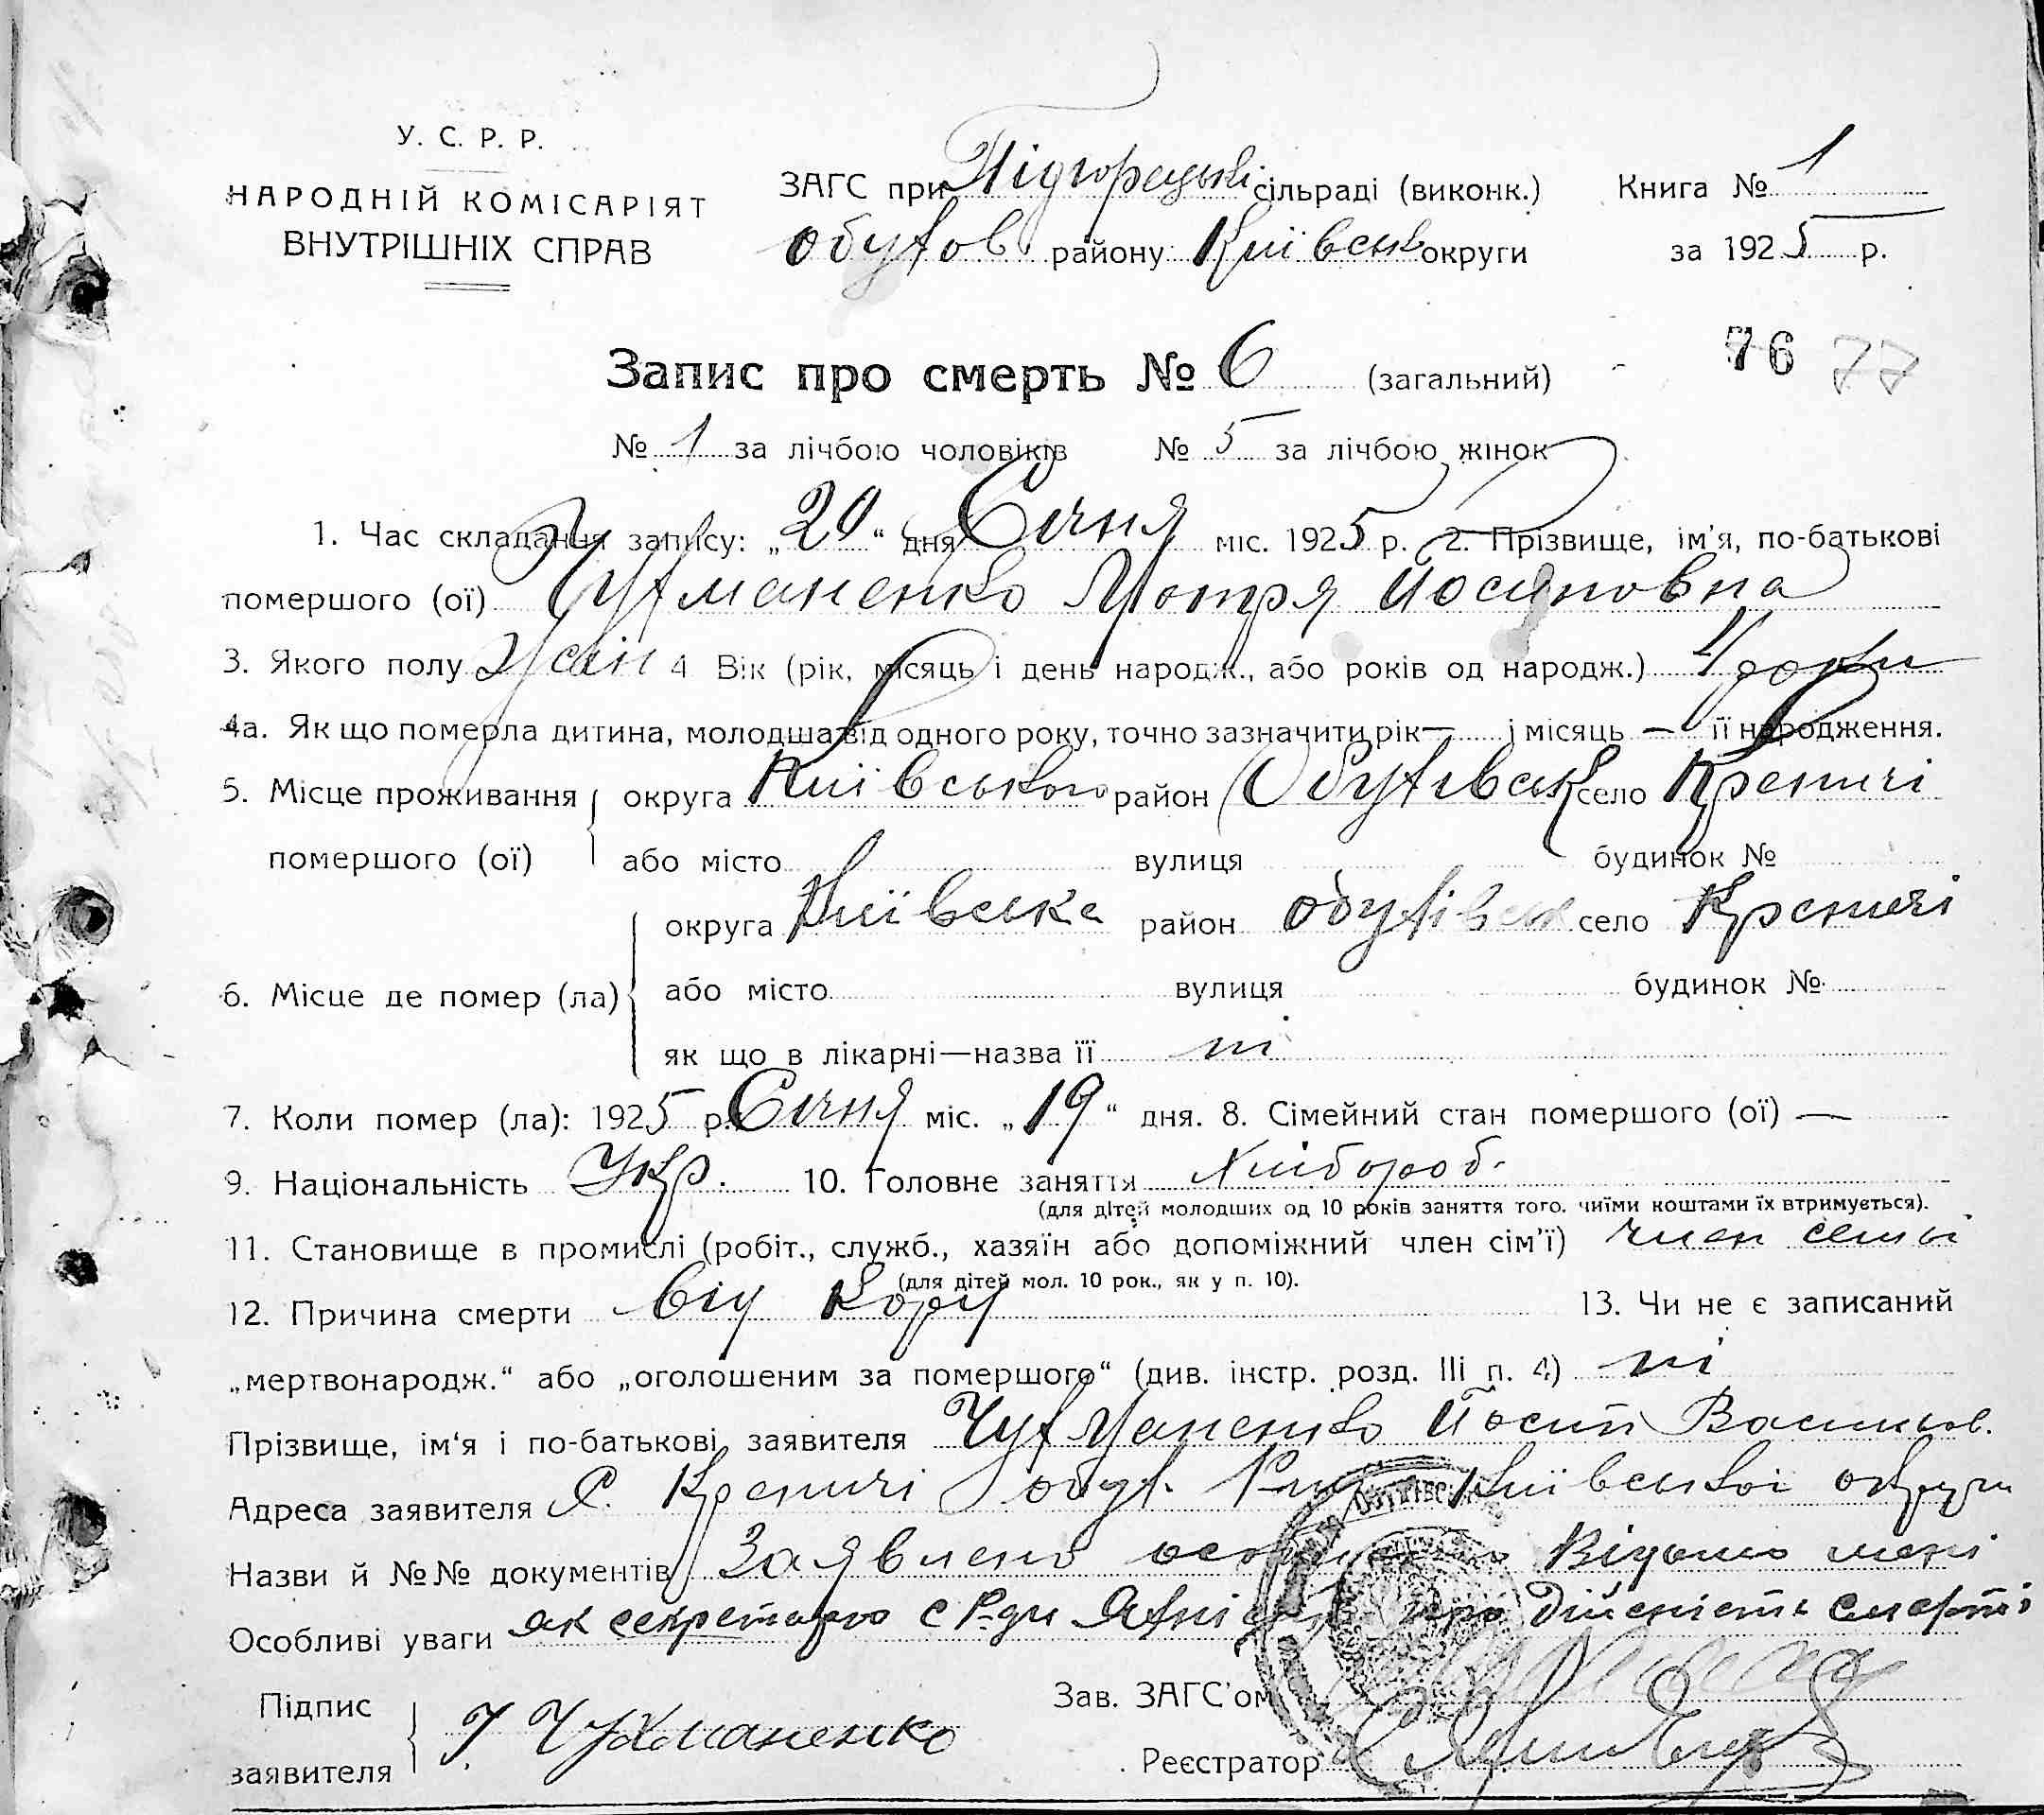 У. С. Р. Р.
НАРОДНІЙ КОМІСАРІЯТ
ВНУТРІШНІХ СПРАВ
ЗАГС при Підгорецькі сільраді (виконк.) Книга № 1
Обухов району Київськ округи за 1925 р.
76 77
Запис про смерть № 6 (загальний)
№ 1 за лічбою чоловіків № 5 за лічбою жінок
1. Час складання запису: „20“ дня Січня міс. 1925 р. 2. Прізвище, ім'я, по-батькові
помершого (ої) Чухманенко Мотря Йосиповна
3. Якого полу Жін 4 Вік (рік, місяць і день народж., або років од народж.) 4 роки
4а. Як що померла дитина, молодша від одного року, точно зазначити рік — і місяць — її народження.
5. Місце проживання округа Київського район Обухівськ село Креничі
помершого (ої) або місто вулиця будинок №
округа Київська район Обухівськ село Креничі
6. Місце де помер (ла) або місто вулиця будинок №
як що в лікарні—назва її ні
7. Коли помер (ла): 1925 р. Січня міс. „19“ дня. 8. Сімейний стан помершого (ої) —
9. Національність Укр. 10. Головне заняття Хлібороб.
(для дітей молодших од 10 років заняття того, чиїми коштами їх втримується).
11. Становище в промислі (робіт., служб., хазяїн або допоміжний член сім'ї) член семьі
(для дітей мол. 10 рок., як у п. 10).
12. Причина смерти від кору 13. Чи не є записаний
„мертвонародж.“ або „оголошеним за помершого“ (див. інстр. розд. III п. 4) ні
Прізвище, ім'я і по-батькові заявителя Чухманенко Йосип Васильов.
Адреса заявителя С. Креничі обух. Київської округи
Назви й №№ документів Заявлено Відомо мені
Особливі уваги як секретарю про дійсність смерті
Підпис Зав. ЗАГС'ом
заявителя Й Чухманенко Реєстратор